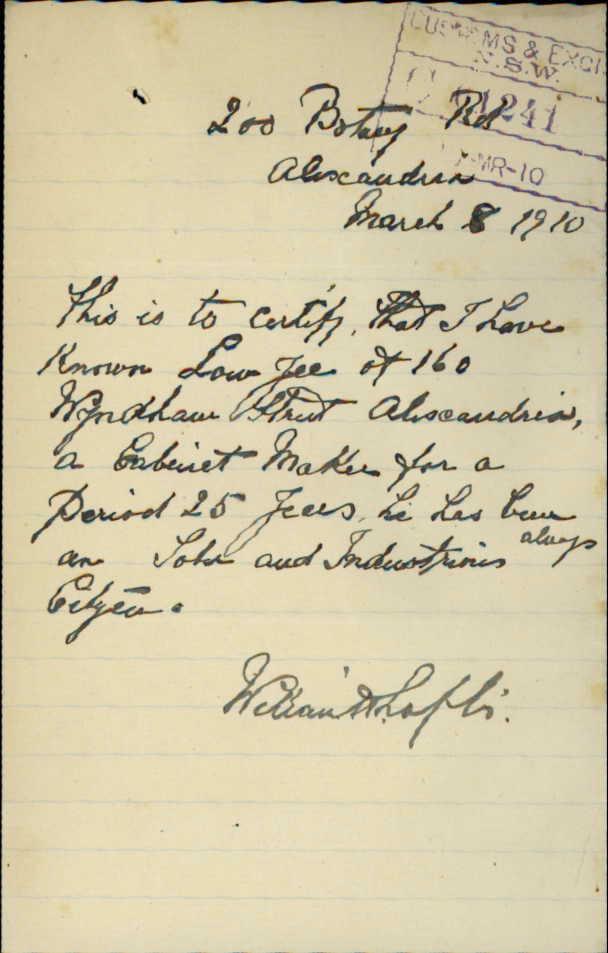 CUSTOMS & EXCI
N.S.W.
1241
MR-10
200 Botany Rd
Alexandria
March 8 1910
This is to certify, that I have
Known Low Jee of 160
Wyndham Street Alexandria,
a Cabinet Maker for a
Period 25 Years, he has been
always
an Sober and Industrious
Citizen.